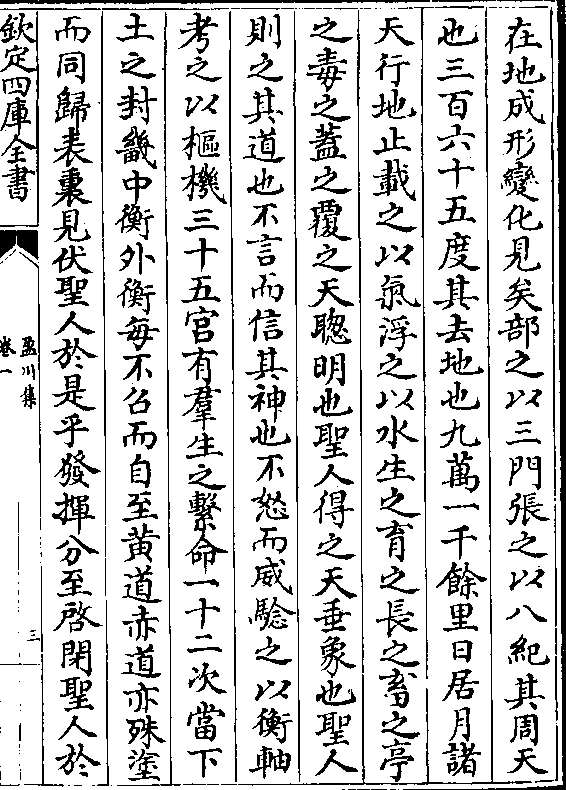 在地成形變化見矣部之以三門張之以八紀其周天
也三百六十五度其去地也九萬一千餘里日居月諸
天行地止載之以氣浮之以水生之育之長之畜之亭
之毒之蓋之覆之天聰明也聖人得之天垂象也聖人
則之其道也不言而信其神也不怒而威驗之以衡軸
考之以樞機三十五官有羣生之繫命一十二次當下
土之封畿中衡外衡每不召而自至黄道赤道亦殊塗
而同歸表裏見伏聖人於是乎發揮分至啓閉聖人於
欽定四庫全書
盈川集
卷一
三